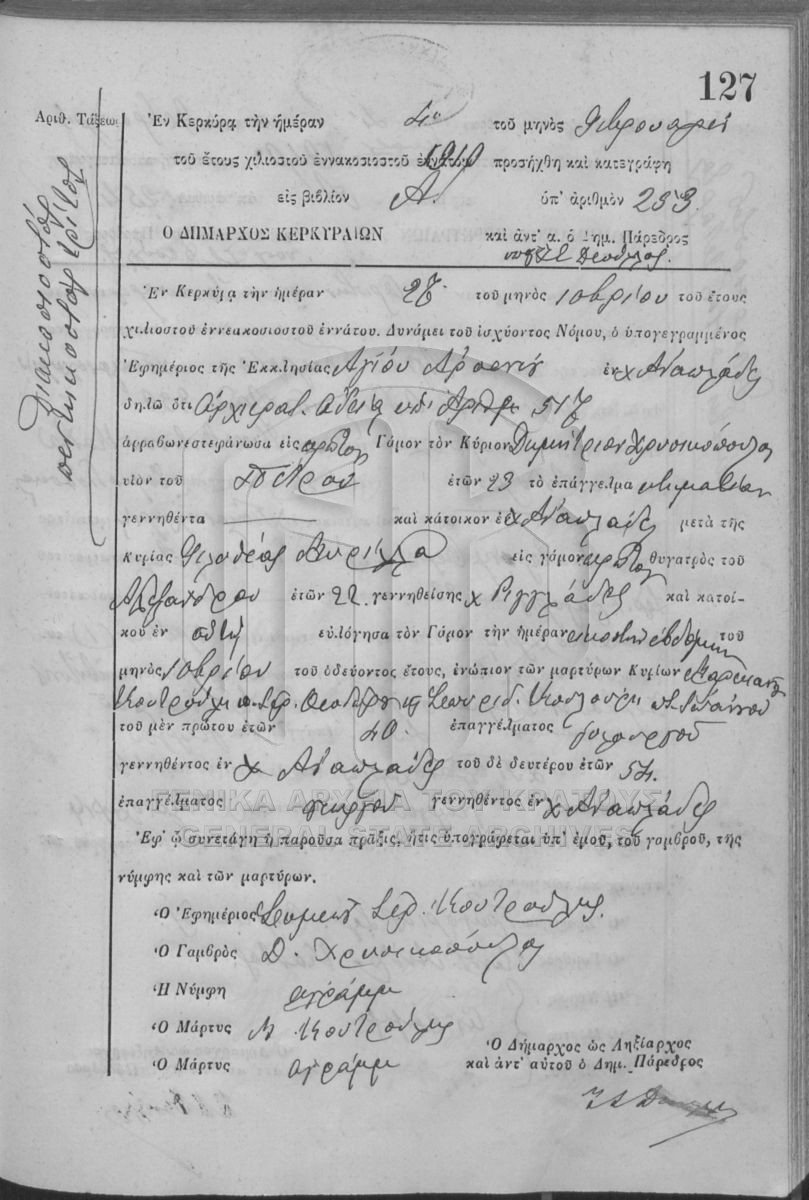 127
Ἀριθ. Τάξεως
Διακοσιοστὴ πεντηκοστὴ τρίτη
Ἐν Κερκύρᾳ τὴν ἡμέραν 4ην τοῦ μηνὸς Φεβρουαρίου
τοῦ ἔτους χιλιοστοῦ ἐννακοσιοστοῦ 1910 προσήχθη καὶ κατεγράφη
εἰς βιβλίον Α. ὑπ' ἀριθμὸν 253
Ο ΔΗΜΑΡΧΟΣ ΚΕΡΚΥΡΑΙΩΝ καὶ ἀντ' α. ὁ Δημ. Πάρεδρος
Ἐν Κερκύρᾳ τὴν ἡμέραν 27 τοῦ μηνὸς 10βρίου τοῦ ἔτους
χιλιοστοῦ ἐννεακοσιοστοῦ ἐννάτου. Δυνάμει τοῦ ἰσχύοντος Νόμου, ὁ ὑπογεγραμμένος
Ἐφημέριος τῆς Ἐκκλησίας Ἁγίου Ἀρσενίου ἐν χ Ἀναπλάδες
δηλῶ ὅτι Ἀρχιερατ. Ἀδείᾳ ὑπ' Ἀριθ. 517
ἀρραβωνεστεφάνωσα εἰς πρῶτον Γάμον τὸν Κύριον Δημήτριον Χρυσικόπουλον
υἱὸν τοῦ Πέτρου ἐτῶν 23 τὸ ἐπάγγελμα κτηματίαν
γεννηθέντα καὶ κάτοικον ἐν χ Ἀναπλάδες μετὰ τῆς
Κυρίας Φιλοθέας εἰς γάμον πρῶτον θυγατρὸς τοῦ
Ἀλεξάνδρου ἐτῶν 22 γεννηθείσης χ Ριγγλάδες καὶ κατοί-
κου ἐν εὐλόγησα τὸν Γάμον τὴν ἡμέραν εἰκοστὴν ἑβδόμην τοῦ
μηνὸς 10βρίου τοῦ ὁδεύοντος ἔτους, ἐνώπιον τῶν μαρτύρων Κυρίων
Κουτρούλη Θεοδώρου καὶ Σπυρίδ. Κουλούρη Ἰωάννου
τοῦ μὲν πρώτου ἐτῶν 40 ἐπαγγέλματος
γεννηθέντος ἐν χ Ἀναπλάδες τοῦ δὲ δευτέρου ἐτῶν 54
ἐπαγγέλματος γεωργοῦ γεννηθέντος ἐν χ Ἀναπλάδες
ΓΕΝΙΚΑ ΑΡΧΕΙΑ ΤΟΥ ΚΡΑΤΟΥΣ
GENERAL STATE ARCHIVES
Ἐφ' ᾧ συνετάγη ἡ παροῦσα πρᾶξις, ἥτις ὑπογράφεται ὑπ' ἐμοῦ, τοῦ γαμβροῦ, τῆς
νύμφης καὶ τῶν μαρτύρων.
Ὁ Ἐφημέριος Κουτρούλης
Ὁ Γαμβρὸς Δ. Χρυσικόπουλος
Ἡ Νύμφη ἀγράμμ
Ὁ Μάρτυς Μ Κουτρούλης
Ὁ Μάρτυς ἀγράμμ
Ὁ Δήμαρχος ὡς Ληξίαρχος
καὶ ἀντ' αὐτοῦ ὁ Δημ. Πάρεδρος